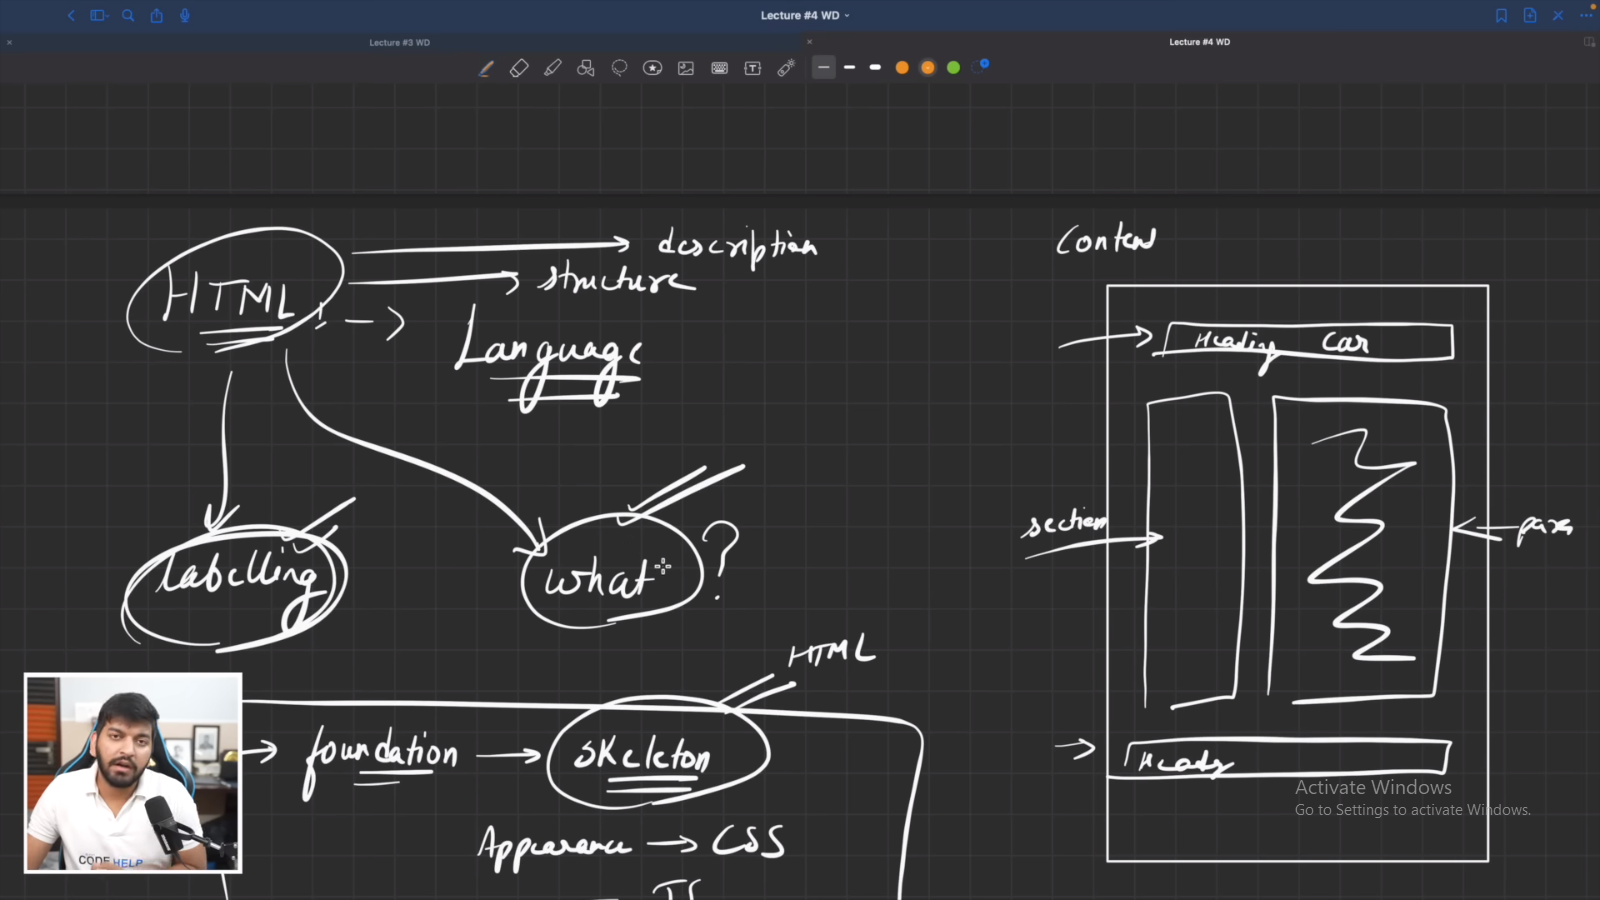 Lecture #4 WD
Lecture #3 WD
Lecture #4 WD
HTML
description
structure
Language
labelling
what ?
HTML
foundation
skeleton
Appearance → CSS
JS
Heading Car
section
Activate Windows
Go to Settings to activate Windows.
CODE HELP